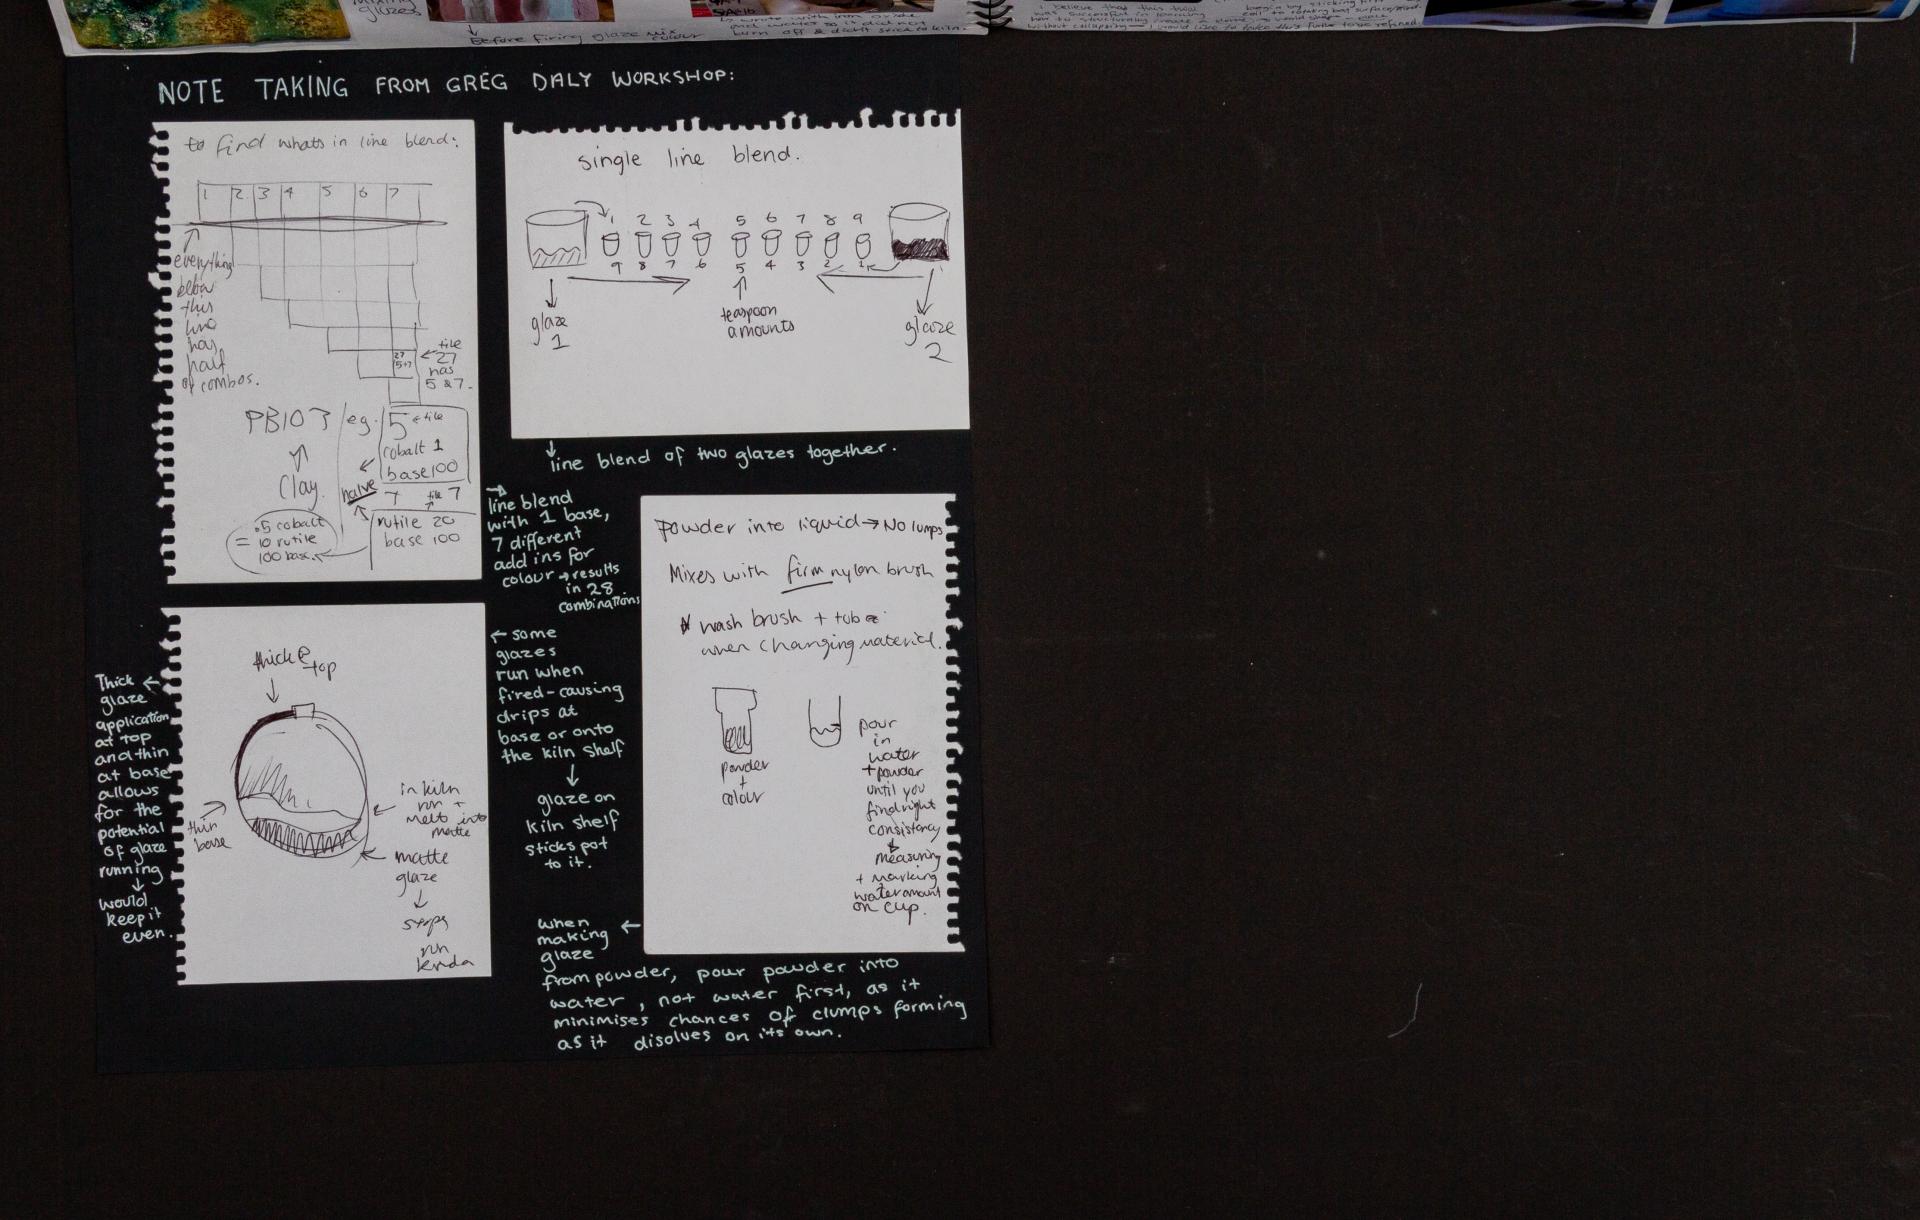 mixing
glazes
Before firing glaze mix
colour
burn off & didn't stick to kiln.
I believe that this two
was successful in
begin by sticking
without collapsing — I would like to
NOTE TAKING FROM GREG DALY WORKSHOP:
to find whats in line blend:
1 2 3 4 5 6 7
everything
below
this
line
has
half
of combos.
27
5+7
← tile
27
has
5 & 7.
PB103
Clay.
eg.
5 ← tile
cobalt 1
base 100
halve
7 tile 7
rutile 20
base 100
= .5 cobalt
10 rutile
100 base.
single line blend.
1 2 3 4 5 6 7 8 9
9 8 7 6 5 4 3 2 1
glaze
1
teaspoon
amounts
glaze
2
line blend of two glazes together.
line blend
with 1 base,
7 different
add ins for
colour → results
in 28
combinations
Powder into liquid → No lumps
Mixes with firm nylon brush
* wash brush + tube
when changing material.
powder
+
colour
pour
in
water
+ powder
until you
find right
consistency
measuring
+ marking
water amount
on cup.
when
making
glaze
from powder, pour powder into
water, not water first, as it
minimises chances of clumps forming
as it disolves on its own.
thick @
top
thin
base
in kiln
run +
melt into
matte
matte
glaze
stops
run
kinda
Thick
glaze
application
at top
and thin
at base
allows
for the
potential
of glaze
running
would
keep it
even.
← some
glazes
run when
fired - causing
drips at
base or onto
the kiln shelf
glaze on
kiln shelf
sticks pot
to it.